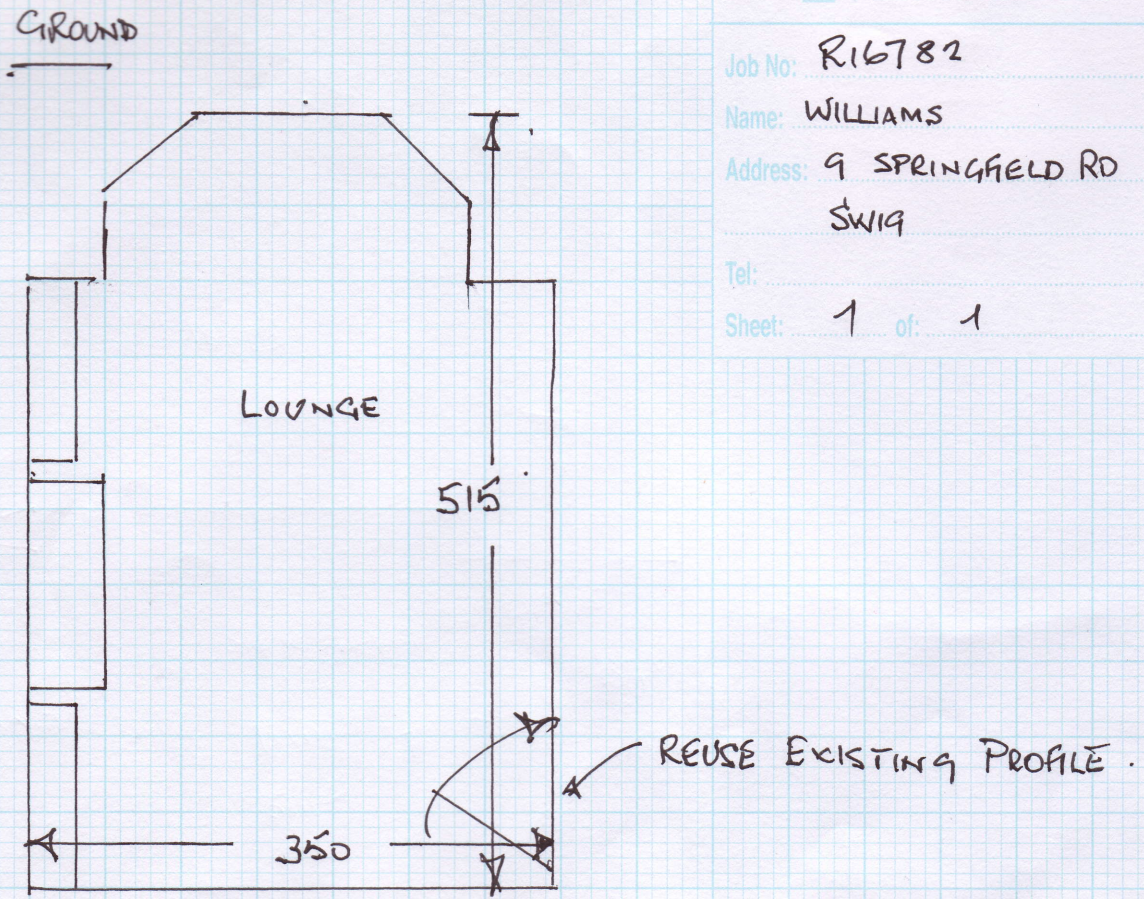 GROUND
Job No: R16782
Name: WILLIAMS
Address: 9 SPRINGFIELD RD
SW19
Tel:
Sheet: 1 of: 1
LOUNGE
515
REUSE EXISTING PROFILE.
350